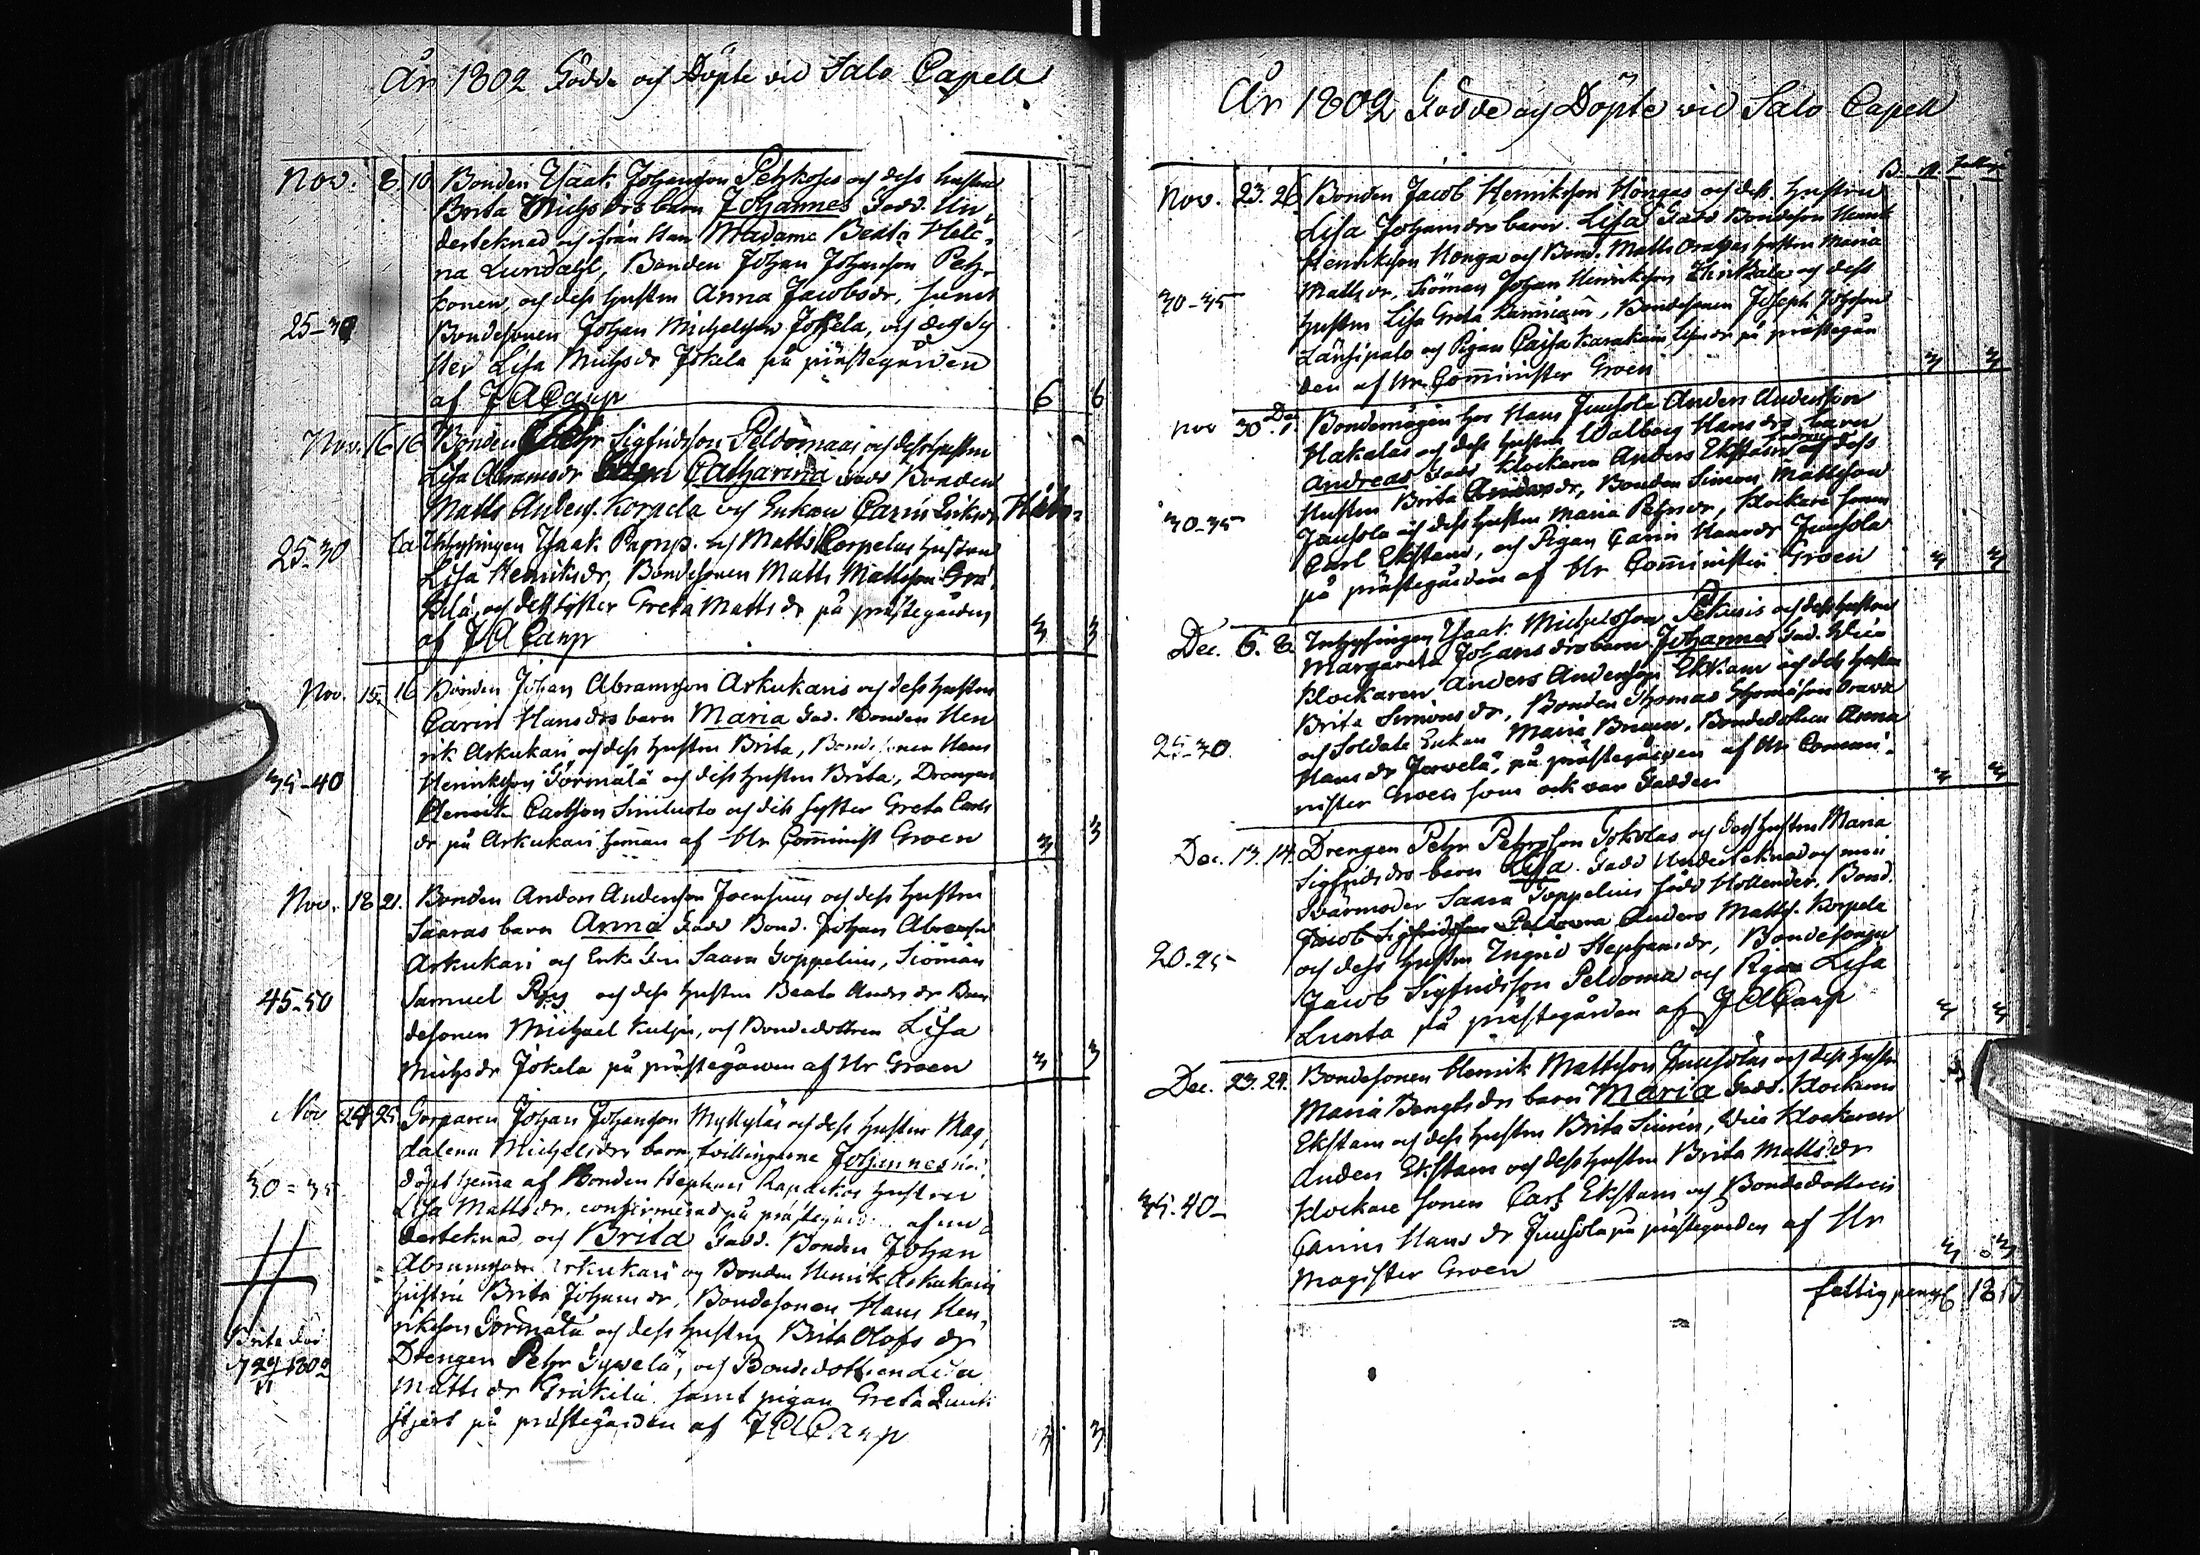 År 1802 Födde och Döpte vid Salo Capell
Nov. 8. 10. Bonden Isaac Johansson Pehkoses och dess hustru
Brita Michs drs barn Johannes Fadd. Un
derteknad och ifrån Han Madame Beata Hele
na Lundahl, Bonden Johan Johansson Peh
konen, och dess hustru Anna Jacobsdr, samt
25-30 Bondesonen Johan Michelsson Jokela, och dess sy
ster Lisa Michsdr Jokela på prästegården
af J A Canp 6 6
Nov. 16 16 Bonden Pehr Sigfridsson Peldomaas och dess hustru
Lisa Abramsdr barn Catharina Fadd Bonden
Matts Anders. Korpela och Enkan Carin Eriksdr
25.30 Inhysingen Isaak och Matts Corpelas hustru
Lisa Henriksdr, Bondesonen Matts Mattsson Grä
kilä, och dess syster Greta Matts dr på prästegården
af J A Canp 3 3
Nov. 15. 16 Bonden Johan Abramsson Arkukaris och dess hustru
Carin Hansdrs barn Maria Fad. Bonden Hen
rik Arkukari och dess hustru Brita, Bondesonen Hans
35-40 Henriksson Törmälä och dess hustru Brita, Drengen
Henrik Carlsson Siniluoto och dess syster Greta Carls
dr på Arkukari hemman af Hr Comminist Groen 3 3
Nov. 18 21. Bonden Anders Andersson Joensuus och dess hustru
Saaras barn Anna Fadd Bond. Johan Abramsson
Arkukari och Saara Toppelius, Siöman
45-50 Samuel och dess hustru Beata Anders dr Bon
desonen Michael och Bondedottren Lisa
Michsdr Jokela på prästegården af Hr Groen 3 3
Nov 24 25. Torparen Johan Johansson Myllyläs och dess hustru Mag
dalena Michelsdrs barn, tvillingarne Johannes
döpt hema af Bonden Stephan hustru
30=35 Lisa Mattsdr, confirmerad på prästegården af un
derteknad och Brita Fadd. Bonden Johan
Abramsson Arkukari og Bonden Henrik Arkukaris
hustru Brita Johansdr, Bondesonen Hans Hen
riksson Törmälä och dess hustru Brita Olofs dr
Brita död Drengen Pehr och Bondedottren Lisa
1802 Matts dr Gräkilä samt pigan Greta
stjert på prästegården af J A Canp 3 3
År 1802 Födde och Döpte vid Salo Capell
Nov. 23. 26. Bonden Jacob Henriksson Hongas och dess hustru
Lisa Johansdrs barn Lisa Fadd Bondeson Henrik
Henriksson Honga och Bond. Matts hustru Maria
Matts dr, Siöman Johan Henriksson och dess
30-35 hustru Lisa Greta Bondesonen Joseph
Länsipalo och Pigan Caisa på prästegår
den af Hr Comminister Groen 3 3
Nov 30 Dec. 1. Bondemågen hos Hans Juusola Anders Andersson
Hakalas och dess hustru Walborg Hansdrs barn
Andreas Fadd Klockaren Anders Ekstam och dess
hustru Brita Andersdr, Bonden Simon Mattsson
30-35 Juusola och dess hustru Maria Pehrsdr, Klockare sonen
Carl Ekstam, och Pigan Carin Hansdr Juusola
på prästegården af Hr Comministern Groen 3 3
Dec. 6. 8. Inhysingen Isaak Michelsson och dess hustru
Margareta Johansdrs barn Johannes Fad. Vice
Klockaren Anders Andersson Ekstam och dess hustru
Brita Simonsdr, Bonden Thomas Thomasson
25-30. och Soldats Enkan Maria Bondedottren Anna
Hans dr på prästegården af Hr Commi
nister Groen som ock var Fadder 3 3
Dec. 13. 14. Drengen Pehr Pehrsson Tokolas och dess hustru Maria
Sigfridsdrs barn Lisa. Fadd Underteknad och min
Svärmoder Saara Toppelius född Hollender. Bond.
Jacob Sigfridsson Peldoma Anders Matts. Korpela
20.25 och dess hustru Ingrid Stephansdr, Bondesonen
Jacob Sigfridsson Peldoma och Pigan Lisa
Lunta på prästegården af J A Canp 3 3
Dec. 23. 24. Bondesonen Henrik Mattsson Juusolas och dess hustru
Maria Bengtsdrs barn Maria Fadd. Klockaren
Ekstam och dess hustru Brita Vice Klockaren
Anders Ekstam och dess hustru Brita Mattsdr
35.40 Klockare sonen Carl Ekstam och Bondedottren
Carin Hans dr Juusola på prästegården af Hr
Magister Groen 3 3